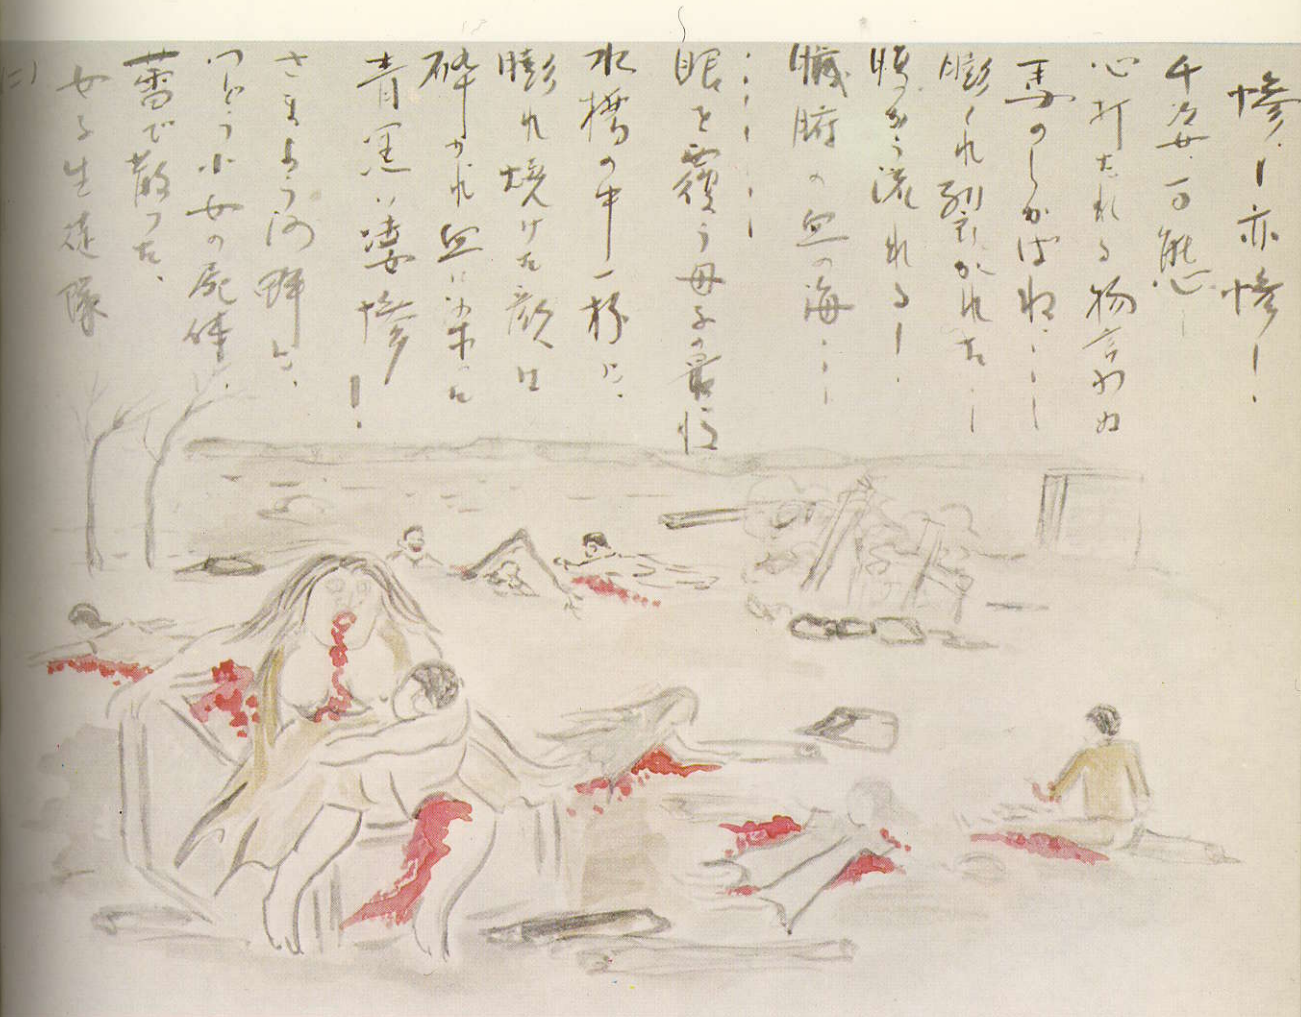 惨ー亦惨ー.
千姿一万態ー
心打たれる物言わぬ
馬のしかばね…ー
膨くれ裂かれた…ー
腹から流れるー.
臓腑の血の海…ー
眼を覆う母子の最後
水槽の中一杯に、
膨れ焼けた顔は
砕かれ血に染った
青黒い凄惨!
さまよう河畔に、
つどう小女の屍体、
蕾で散った、
女子生徒隊
(二)